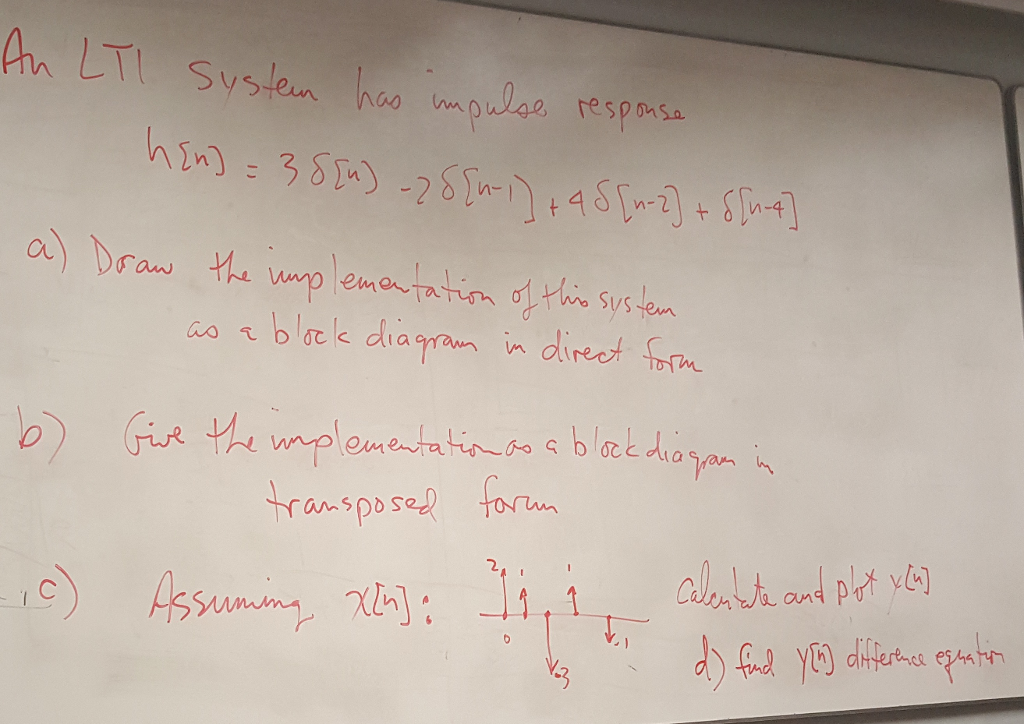 An LTI system has impulse response
h[n] = 3δ[n] - 2δ[n-1] + 4δ[n-2] + δ[n-4]
a) Draw the implementation of this system
as a block diagram in direct form
b) Give the implementation as a block diagram in
transposed form
c) Assuming x[n]: 2 1 1 0 -3 -1 Calculate and plot y[n]
d) find y[n] difference equation